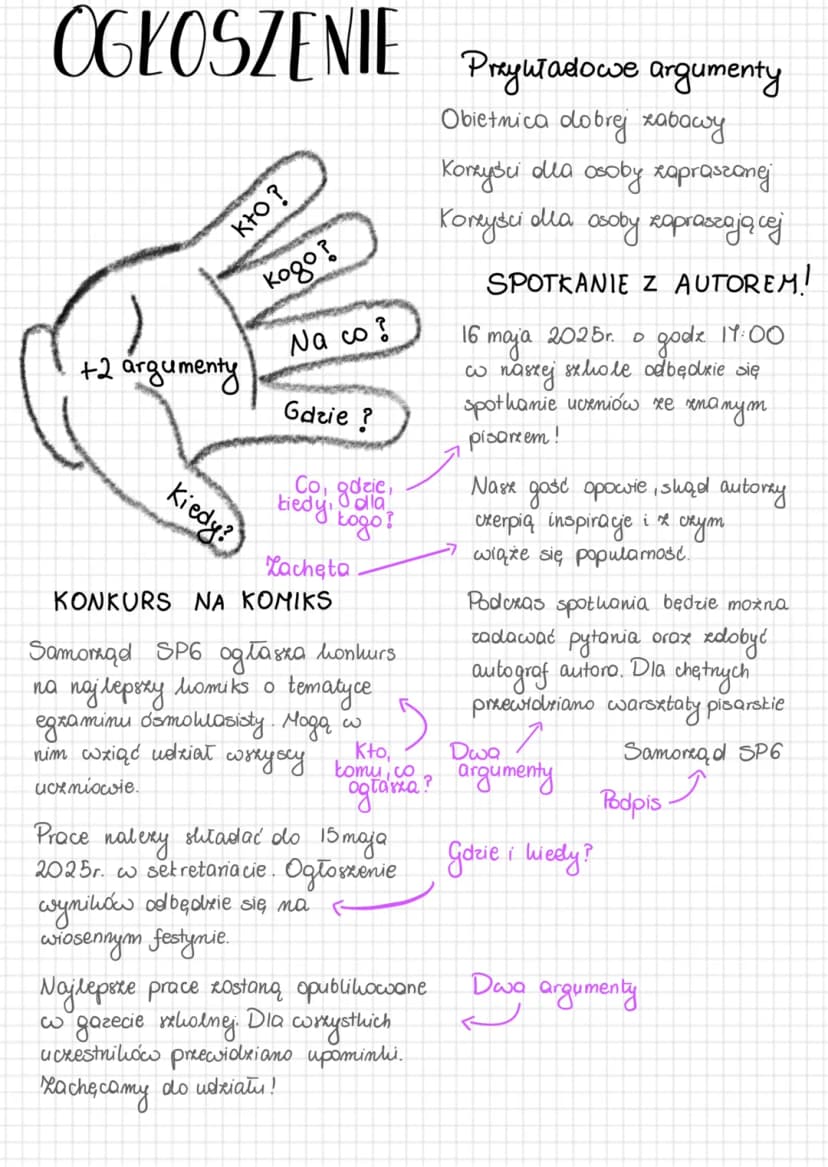 OGŁOSZENIE
Kto?
Kogo?
Na co?
Gdzie?
Kiedy?
+2 argumenty
Przykładowe argumenty
Obietnica dobrej zabawy
Korzyści dla osoby zapraszanej
Korzyści dla osoby zapraszającej
SPOTKANIE Z AUTOREM!
16 maja 2025r. o godz 17:00
w naszej szkole odbędzie się
spotkanie uczniów ze znanym
pisarzem!
Co, gdzie,
kiedy, dla
kogo?
Nasz gość opowie, skąd autorzy
czerpią inspiracje i z czym
wiąże się popularność.
Zachęta
Podczas spotkania będzie można
zadawać pytania oraz zdobyć
autograf autora. Dla chętnych
przewidziano warsztaty pisarskie
Dwa
argumenty
Samorząd SP6
Podpis
KONKURS NA KOMIKS
Samorząd SP6 ogłasza konkurs
na najlepszy komiks o tematyce
egzaminu ósmoklasisty. Mogą w
nim wziąć udział wszyscy
uczniowie.
Kto,
komu, co
ogłasza?
Prace należy składać do 15 maja
2025r. w sekretariacie. Ogłoszenie
wyników odbędzie się na
wiosennym festynie.
Gdzie i kiedy?
Najlepsze prace zostaną opublikowane
w gazecie szkolnej. Dla wszystkich
uczestników przewidziano upominki.
Zachęcamy do udziału!
Dwa argumenty